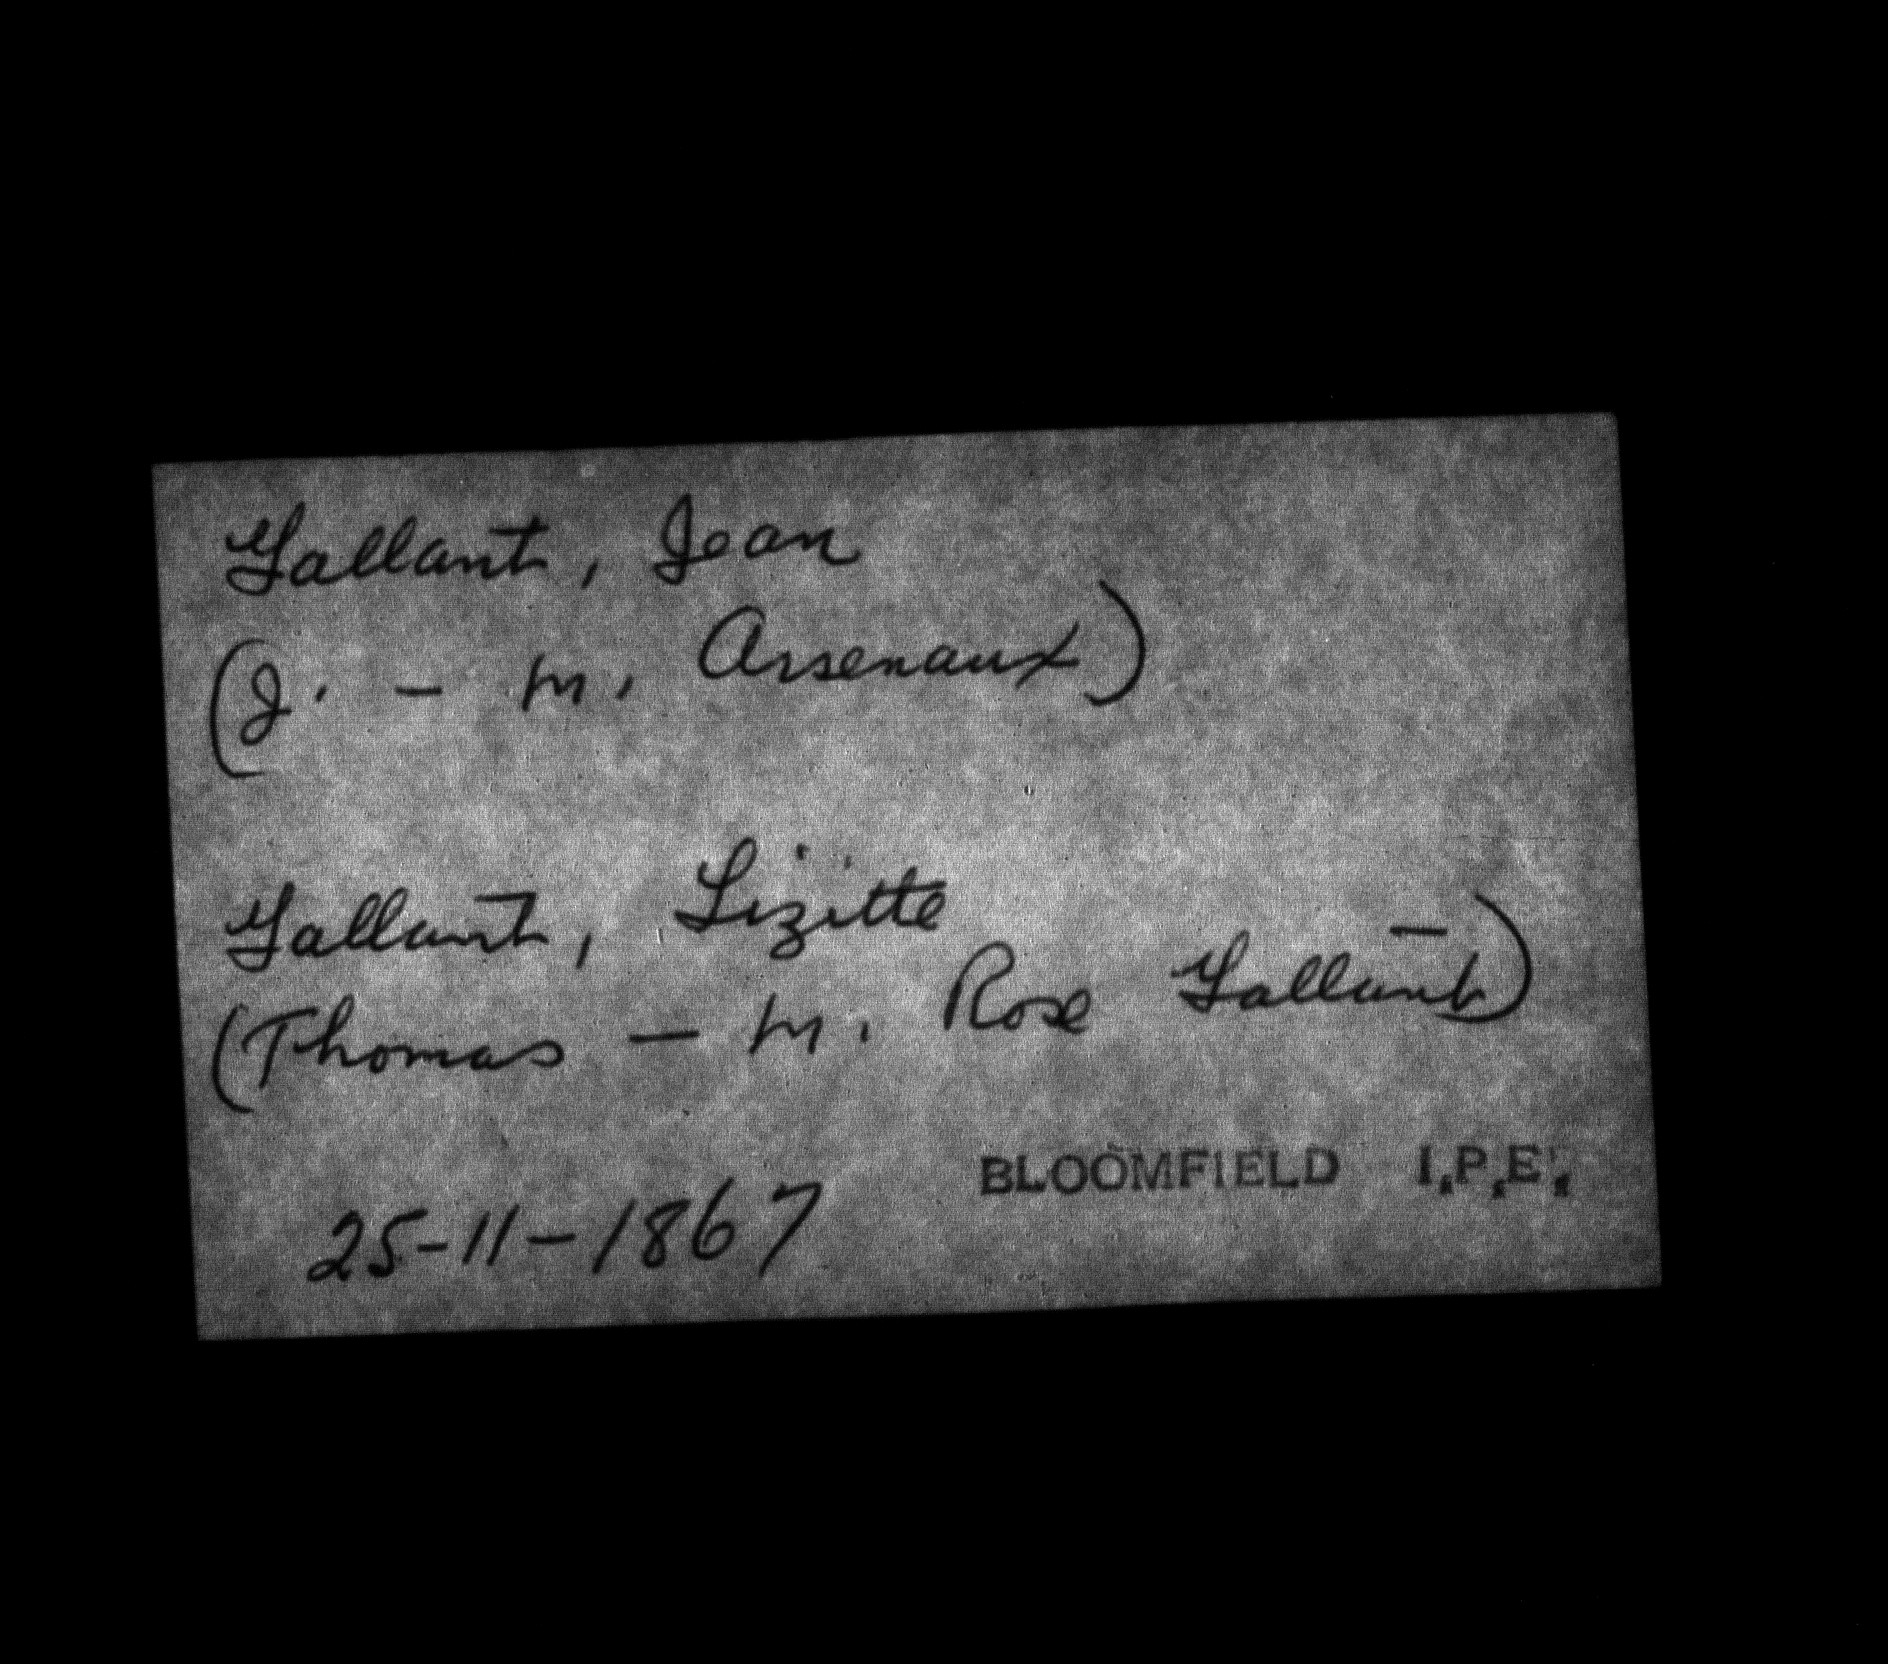 Gallant, Jean
(J. - m. Arsenaux)
Gallant, Lizitte
(Thomas - m. Rose Gallant)
BLOOMFIELD I.P.E.
25-11-1867